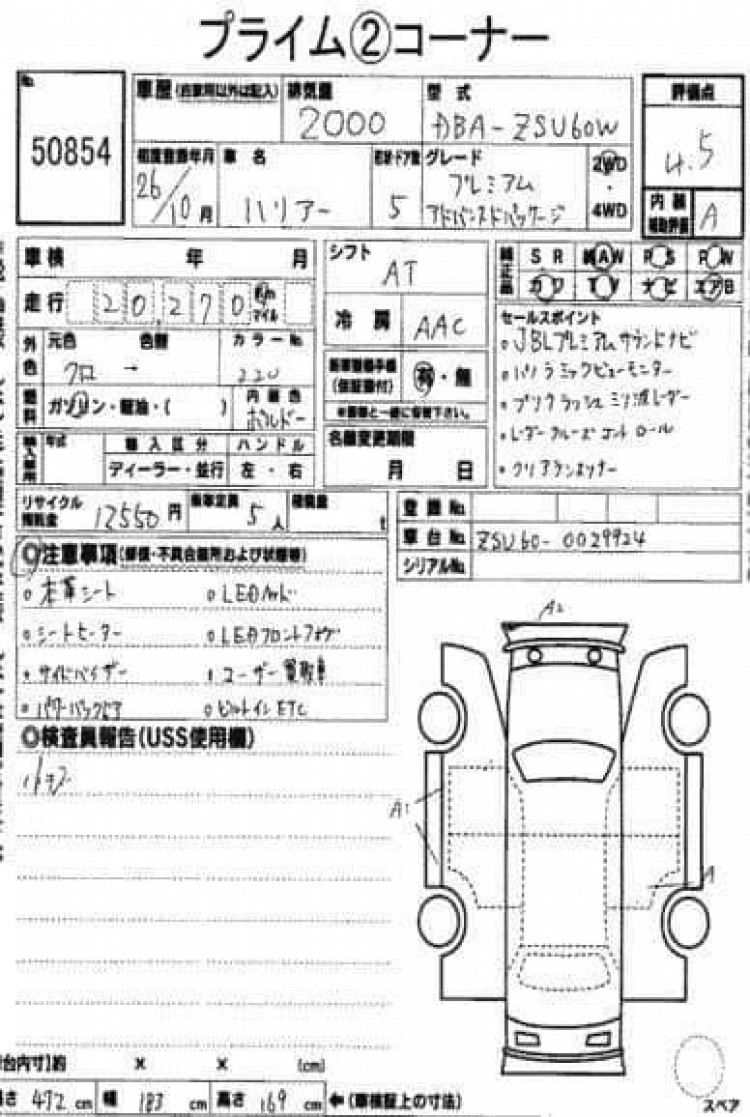 プライム②コーナー
No.
50854
車歴(自家用以外は記入)
排気量
2000
型式
DBA-ZSU60W
評価点
4.5
初度登録年月
26/10月
車名
ハリアー
形状・ドア数
5
グレード
プレミアム
アドバンスドパッケージ
2WD
・
4WD
内装
補助評価
A
車検 年 月
走行 20,270 Km マイル
シフト
AT
冷房
AAC
純正品
SR 純AW PS PW
カワ TV ナビ エアB
外色
元色 色替
クロ →
カラーNo.
220
燃料
ガソリン・軽油・( )
内装色
ボルドー
輸入車用
年式
輸入区分
ディーラー・並行
ハンドル
左・右
新車整備手帳
(保証書付)
有・無
※書類と一緒に保管下さい。
名義変更期限
月 日
セールスポイント
。JBLプレミアムサウンドナビ
。パノラミックビューモニター
。プリクラッシュミリ波レーダー
。レーダークルーズコントロール
。クリアランスソナー
リサイクル
預託金
12550円
乗車定員
5人
積載量
t
登録No.
車台No.
ZSU60-0029924
シリアルNo.
◎注意事項(修復・不具合箇所および状態等)
。本革シート 。LEDヘッド
。シートヒーター 。LEDフロントフォグ
・サイドバイザー ・ユーザー買取車
。パワーバックドア 。ビルトインETC
◎検査員報告(USS使用欄)
小キズ
A2
A1
A
台内寸]約 × × (cm)
長さ 472 cm 幅 183 cm 高さ 169 cm ←(車検証上の寸法)
スペア